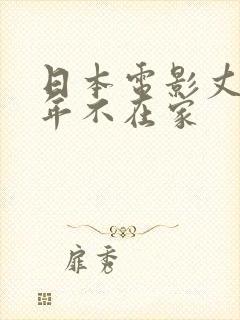 日本电影丈
年不在家
扉秀